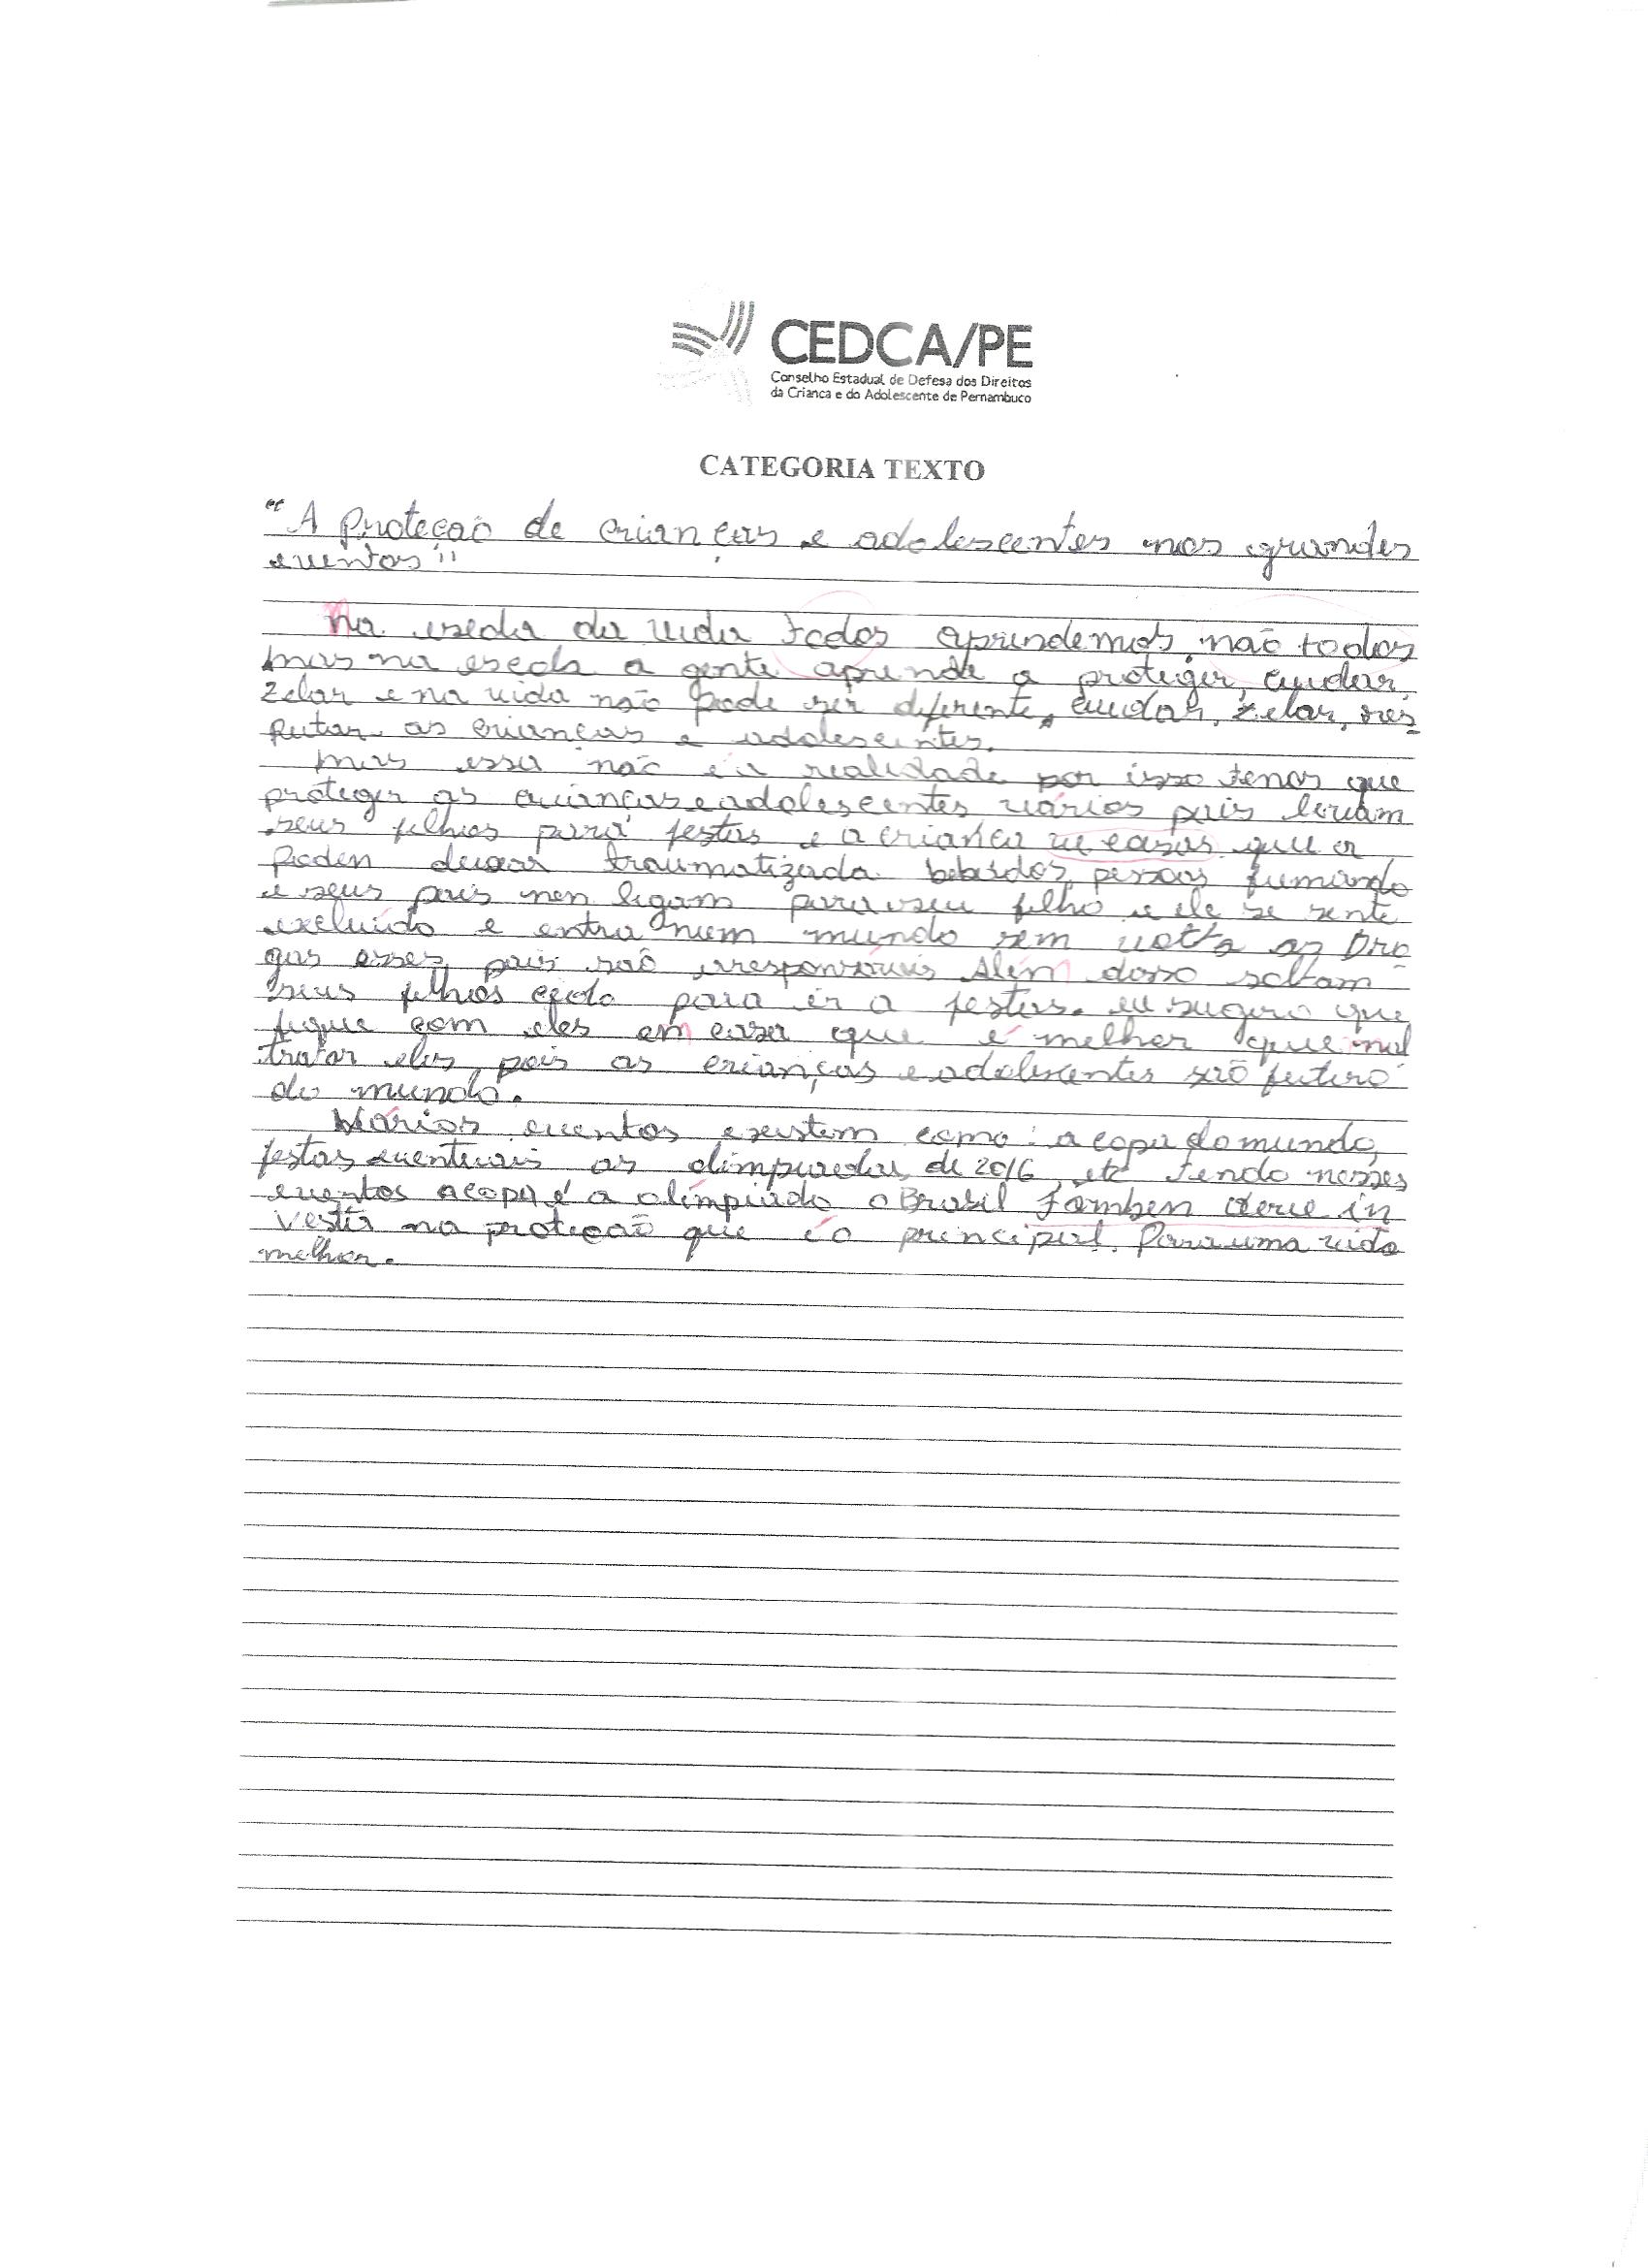 CEDCA/PE
Conselho Estadual de Defesa dos Direitos
da Criança e do Adolescente de Pernambuco
CATEGORIA TEXTO
"A Proteçaõ de crianças e adolescentes nos grandes
eventos"
Na escola da vida todos aprendemos, não todos
mas na escola a gente aprende a proteger, cuidar,
zelar e na vida não pode ser diferente, cuidar, zelar, res-
peitar as crianças e adolescentes.
Mas essa não é a realidade por isso temos que
proteger as crianças e adolescentes vários pais levam
seus filhos para festas e a criança ve casos que a
poden deixar traumatizada bebardos, pessoas fumando
e seus pais nen ligam para seu filho e ele se sente
excluído e entra num mundo sem volta as Dro-
gas esses pais são irresponsáveis Além disso soltam
seus filhos cedo para ir a festas. eu sugiro que
fique com eles em casa que é melhor que mal
tratar eles, pois as crianças e adolescentes são futuro
do mundo.
Vários eventos existem como: a copa do mundo,
festas eventuais as olimpiadas de 2016, etc tendo nesses
eventos a copa é a olímpiada o Brasil Tambem deve in
vestir na proteção que é o principal. Para uma vida
melhor.